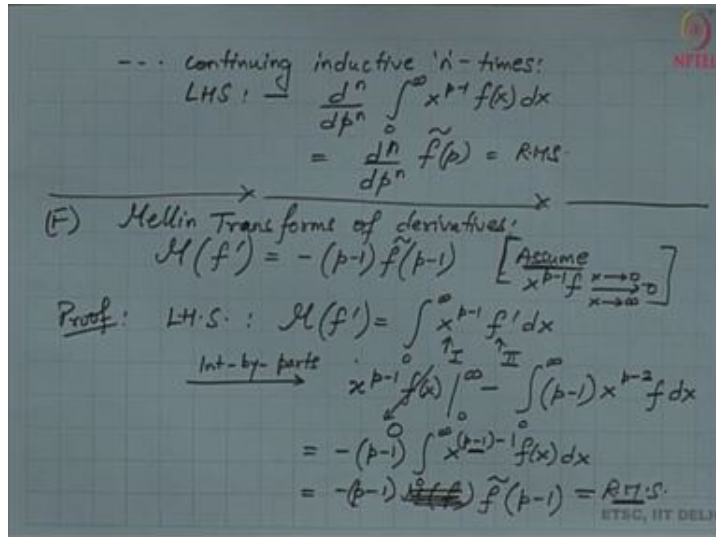 --- continuing inductive 'n'-times:
LHS: — d^n/dp^n ∫_0^∞ x^{p-1} f(x) dx
= d^n/dp^n f̃(p) = R.H.S.
(F) Mellin Transforms of derivatives:
M(f') = -(p-1) f̃(p-1) [Assume x^{p-1} f → 0 x→0 x→∞]
Proof: L.H.S.: M(f') = ∫_0^∞ x^{p-1} f' dx
↑I ↑II
Int-by-parts → x^{p-1} f(x) |_0^∞ - ∫_0^∞ (p-1) x^{p-2} f dx
0
= -(p-1) ∫_0^∞ x^{(p-1)-1} f(x) dx
= -(p-1) f̃(p-1) = R.H.S.
NPTEL
ETSC, IIT DELHI